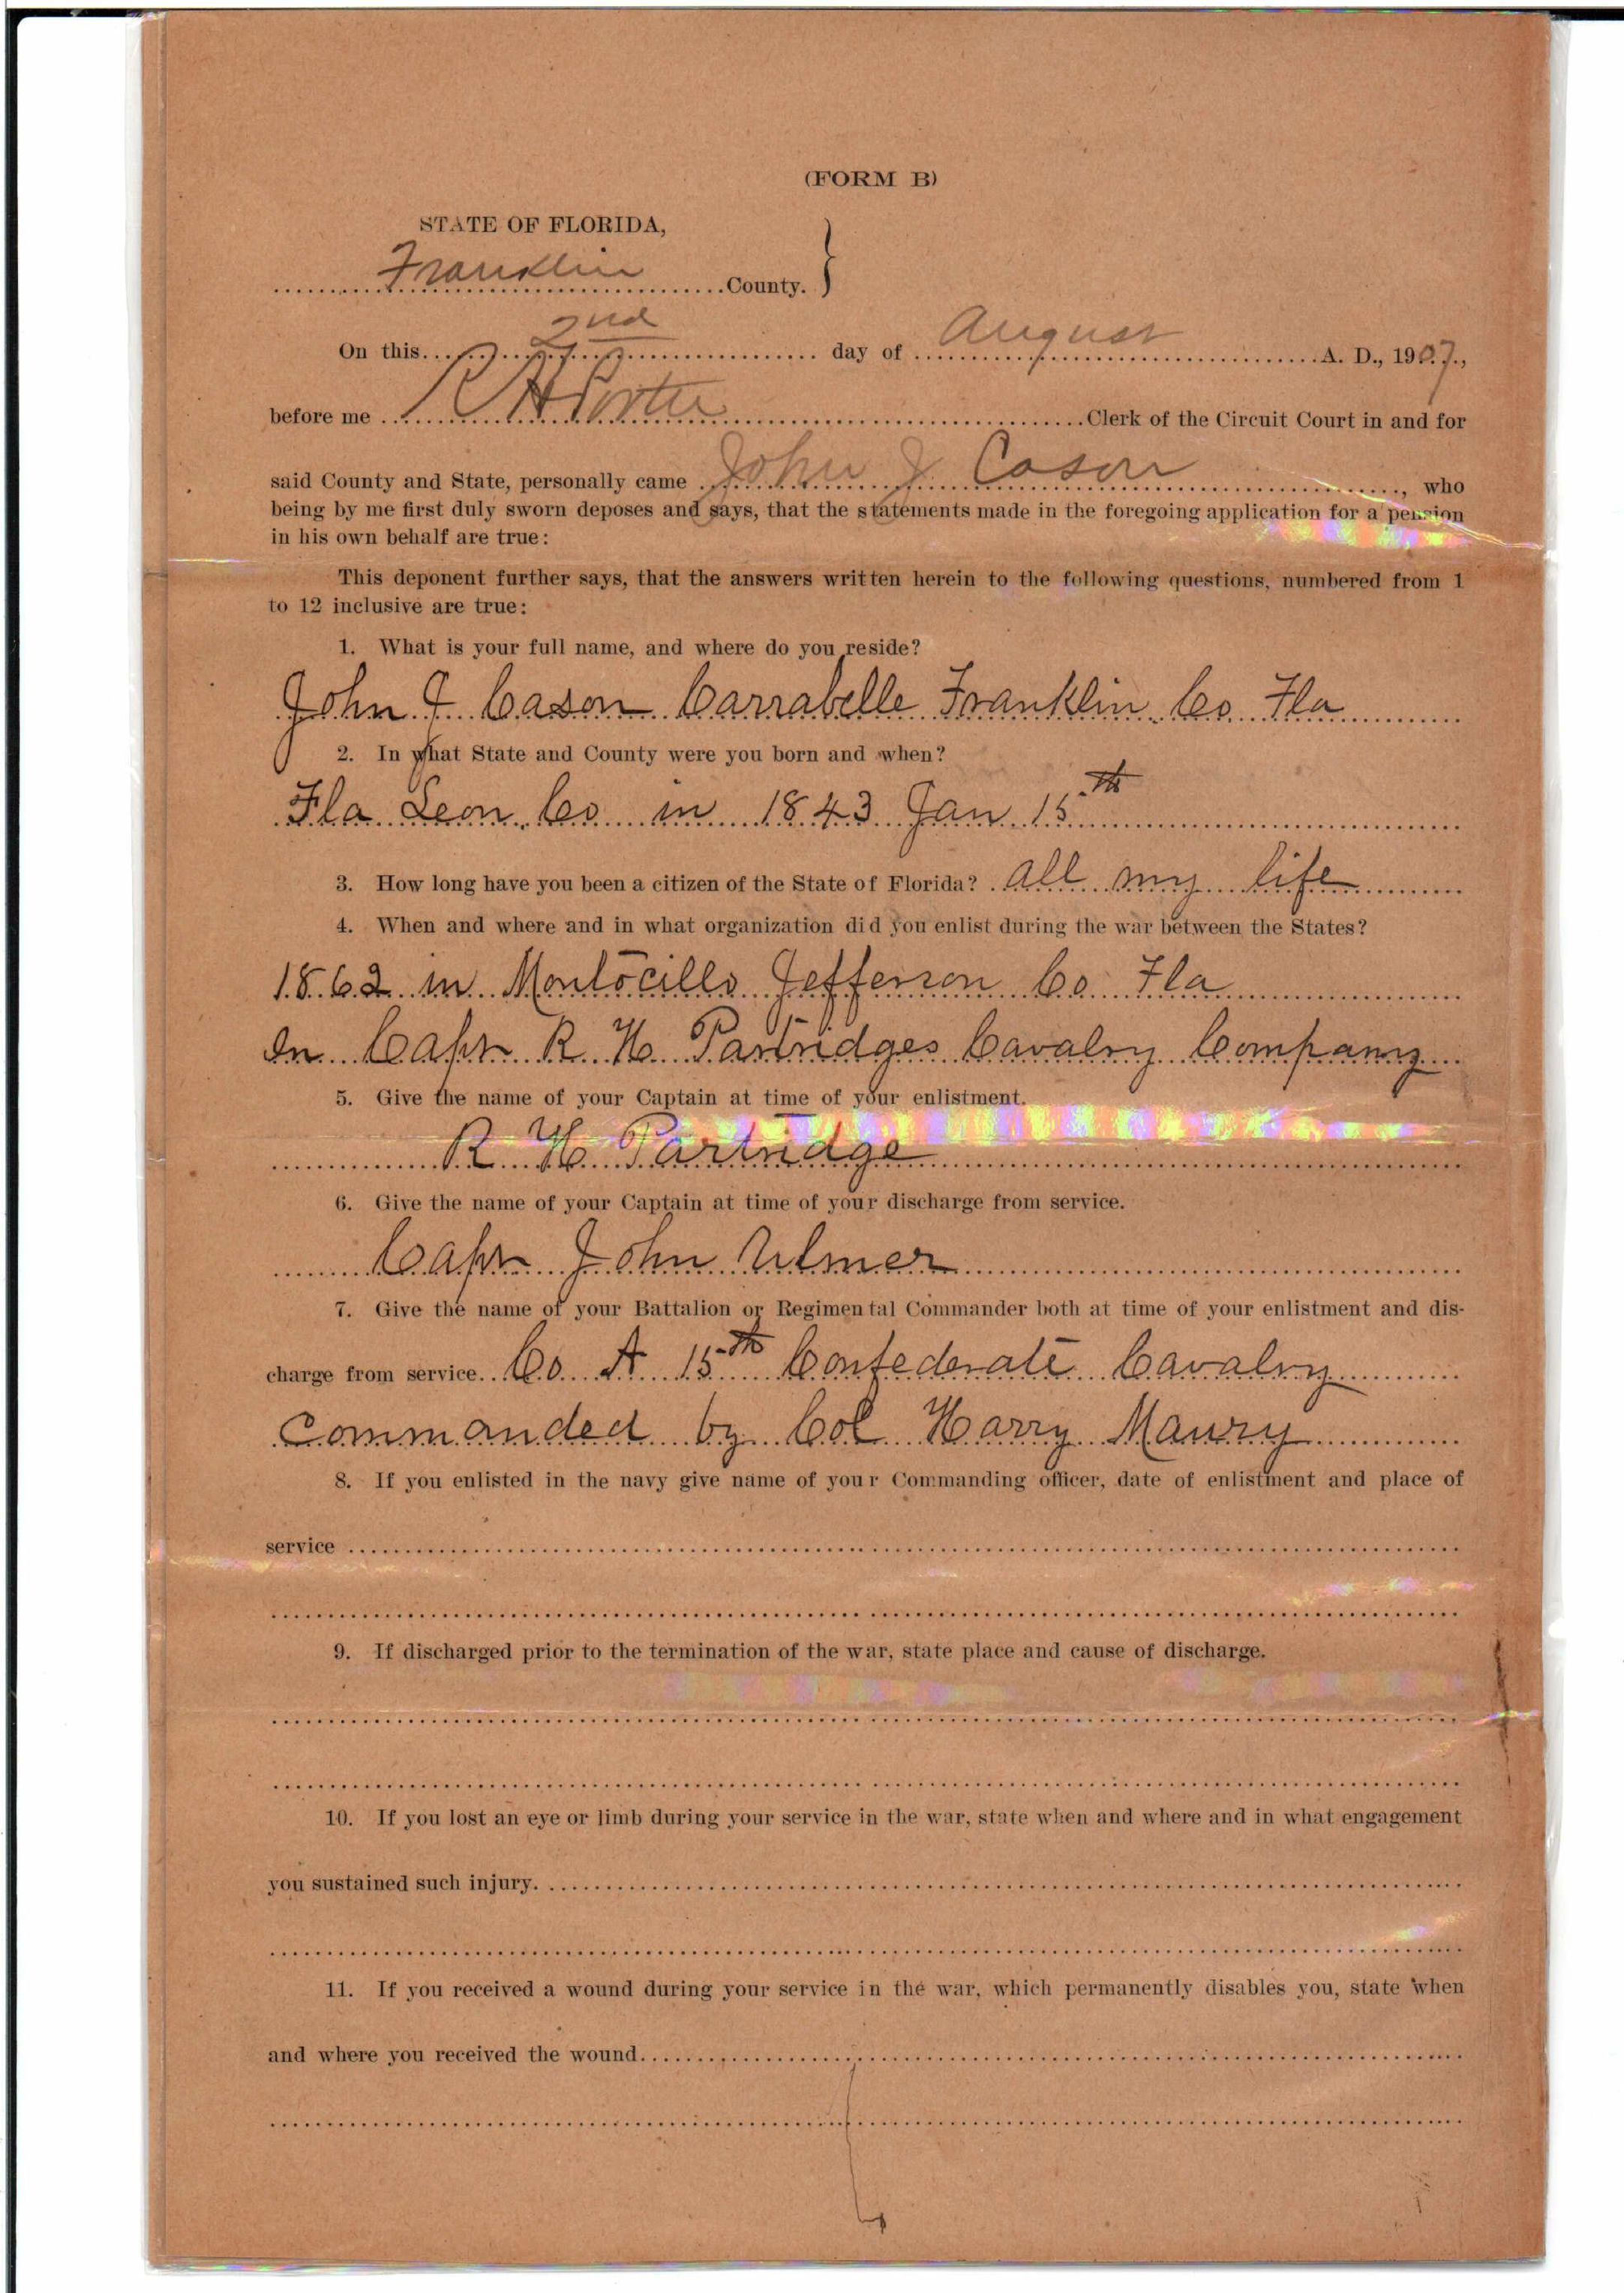 (FORM B)
STATE OF FLORIDA,
Franklin County. }
On this 2nd day of August A. D., 1907.,
before me R H Porter Clerk of the Circuit Court in and for
said County and State, personally came John J Cason, who
being by me first duly sworn deposes and says, that the statements made in the foregoing application for a pension
in his own behalf are true:
This deponent further says, that the answers written herein to the following questions, numbered from 1
to 12 inclusive are true:
1. What is your full name, and where do you reside?
John J Cason Carrabelle Franklin Co Fla
2. In what State and County were you born and when?
Fla Leon Co in 1843 Jan 15th
3. How long have you been a citizen of the State of Florida? all my life
4. When and where and in what organization did you enlist during the war between the States?
1862 in Montocillo Jefferson Co Fla
In Capt R. H. Partridges Cavalry Company
5. Give the name of your Captain at time of your enlistment.
R. H. Partridge
6. Give the name of your Captain at time of your discharge from service.
Capt John Ulmer
7. Give the name of your Battalion or Regimental Commander both at time of your enlistment and dis-
charge from service. Co. A 15th Confederate Cavalry
Commanded by Col Harry Maury
8. If you enlisted in the navy give name of your Commanding officer, date of enlistment and place of
service
9. If discharged prior to the termination of the war, state place and cause of discharge.
10. If you lost an eye or limb during your service in the war, state when and where and in what engagement
you sustained such injury.
11. If you received a wound during your service in the war, which permanently disables you, state when
and where you received the wound.